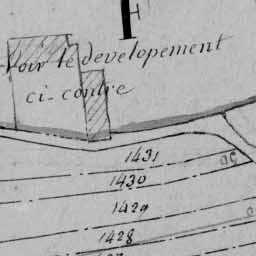 Voir le developement
ci-contre
1431
1430
1429
1428